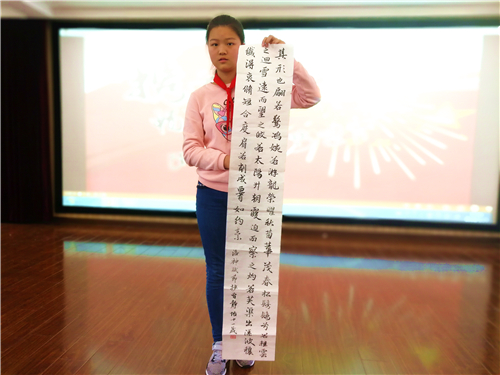 其形也翩若驚鴻婉若游龍榮曜秋菊華茂春松髣髴兮若輕雲
迴雪遠而望之皎若太陽升朝霞迫而察之灼若芙蕖出渌波穠
纖得衷脩短合度肩若削成腰如約素 洛神賦